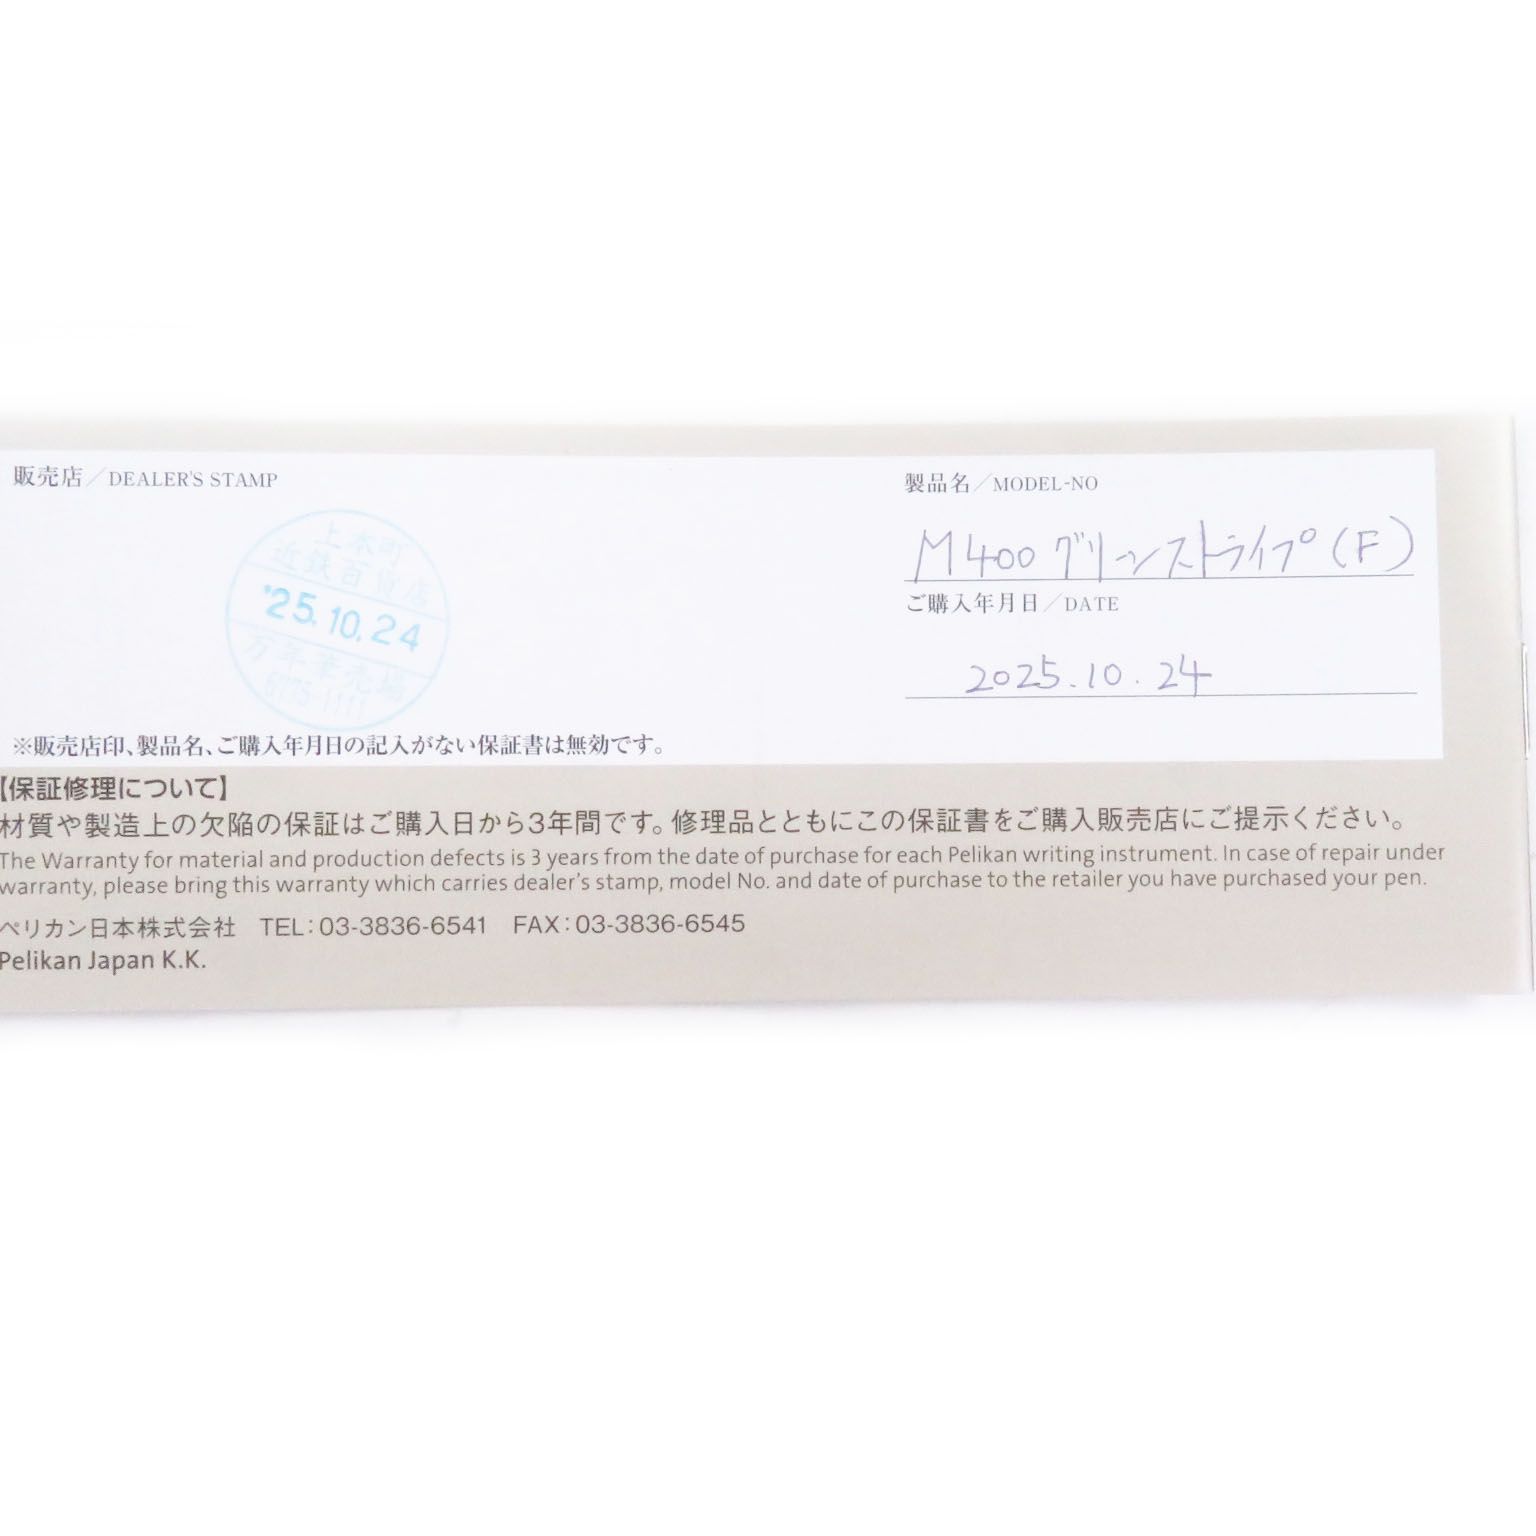 販売店／DEALER'S STAMP
上本町
近鉄百貨店
'25.10.24
万年筆売場
製品名／MODEL-NO
M400 グリーンストライプ(F)
ご購入年月日／DATE
2025.10.24
※販売店印、製品名、ご購入年月日の記入がない保証書は無効です。
【保証修理について】
材質や製造上の欠陥の保証はご購入日から3年間です。修理品とともにこの保証書をご購入販売店にご提示ください。
The Warranty for material and production defects is 3 years from the date of purchase for each Pelikan writing instrument. In case of repair under
warranty, please bring this warranty which carries dealer's stamp, model No. and date of purchase to the retailer you have purchased your pen.
ペリカン日本株式会社 TEL:03-3836-6541 FAX:03-3836-6545
Pelikan Japan K.K.